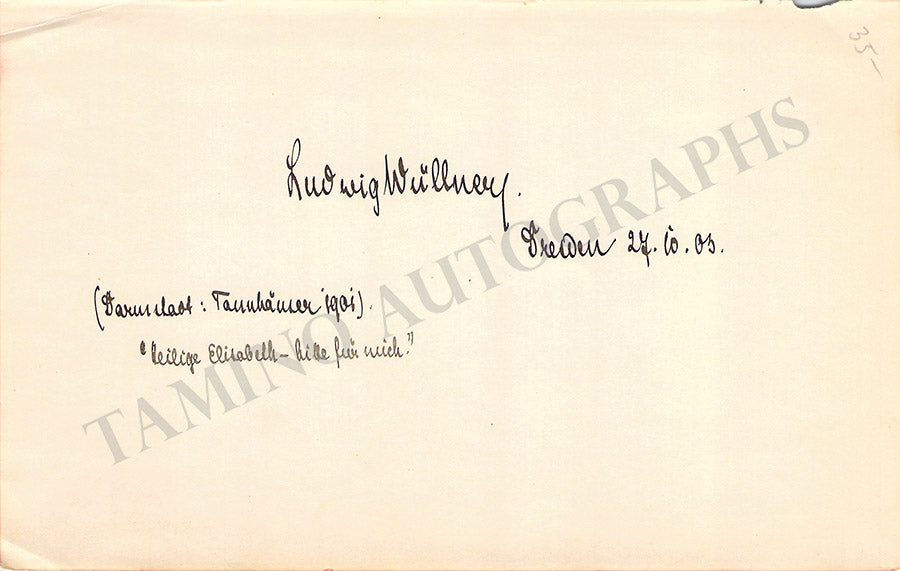 35-
Ludwig Wüllner.
Dresden 27.10.03.
(Darmstadt: Tannhäuser 1901).
"Heilige Elisabeth – bitte für mich."
TAMINO AUTOGRAPHS